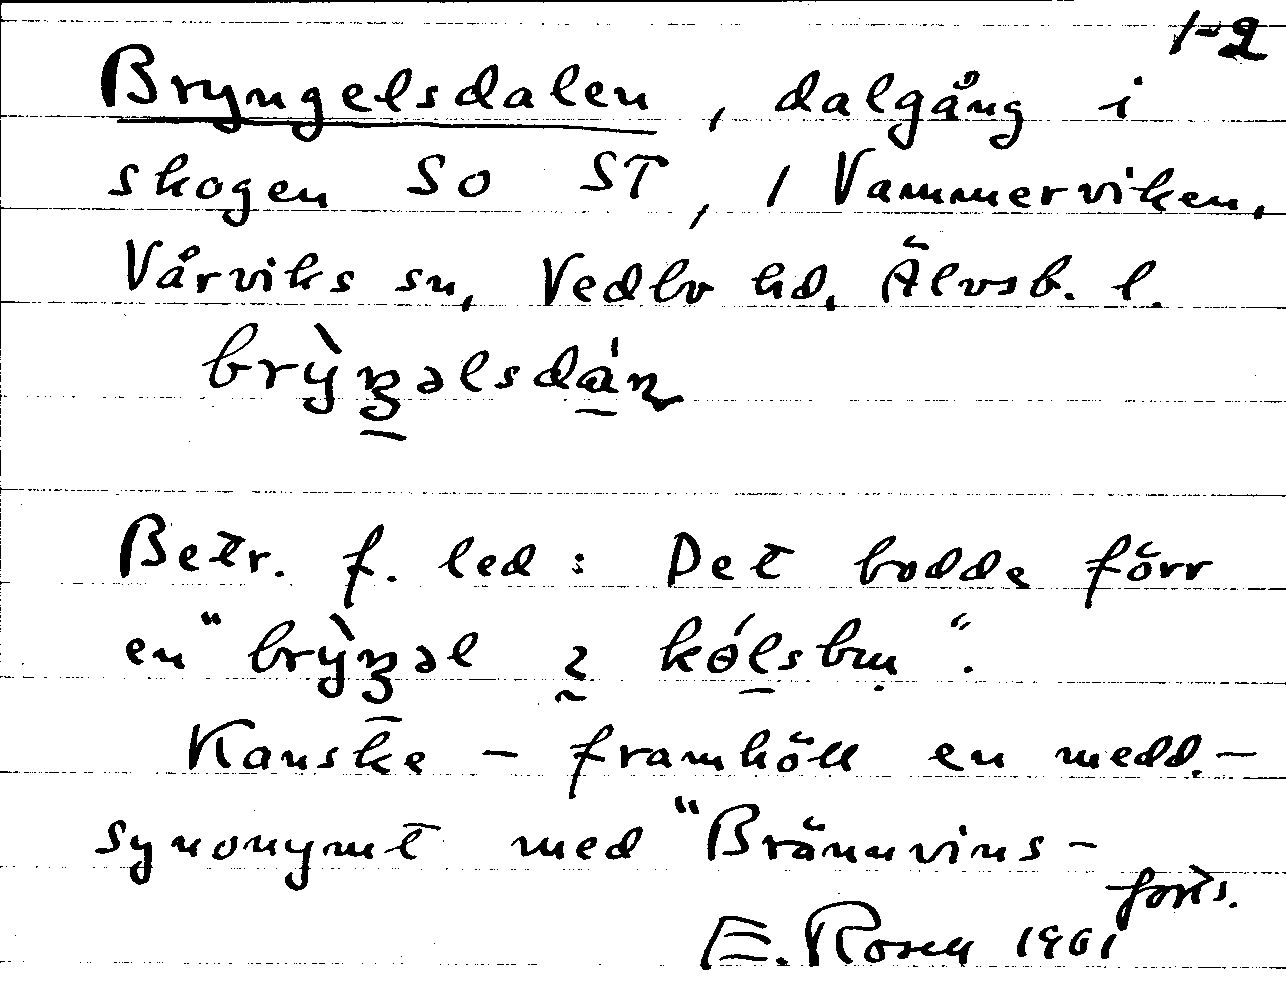 1-2
Bryngelsdalen, dalgång i
skogen SO ST, / Vammerviken,
Vårviks sn, Vedbo hd, Älvsb. l.
Betr. f. led: Det bodde förr
en "
Kanske - framhöll en medd. -
synonymt med "Brännvins-
forts.
E. Rosell 1961